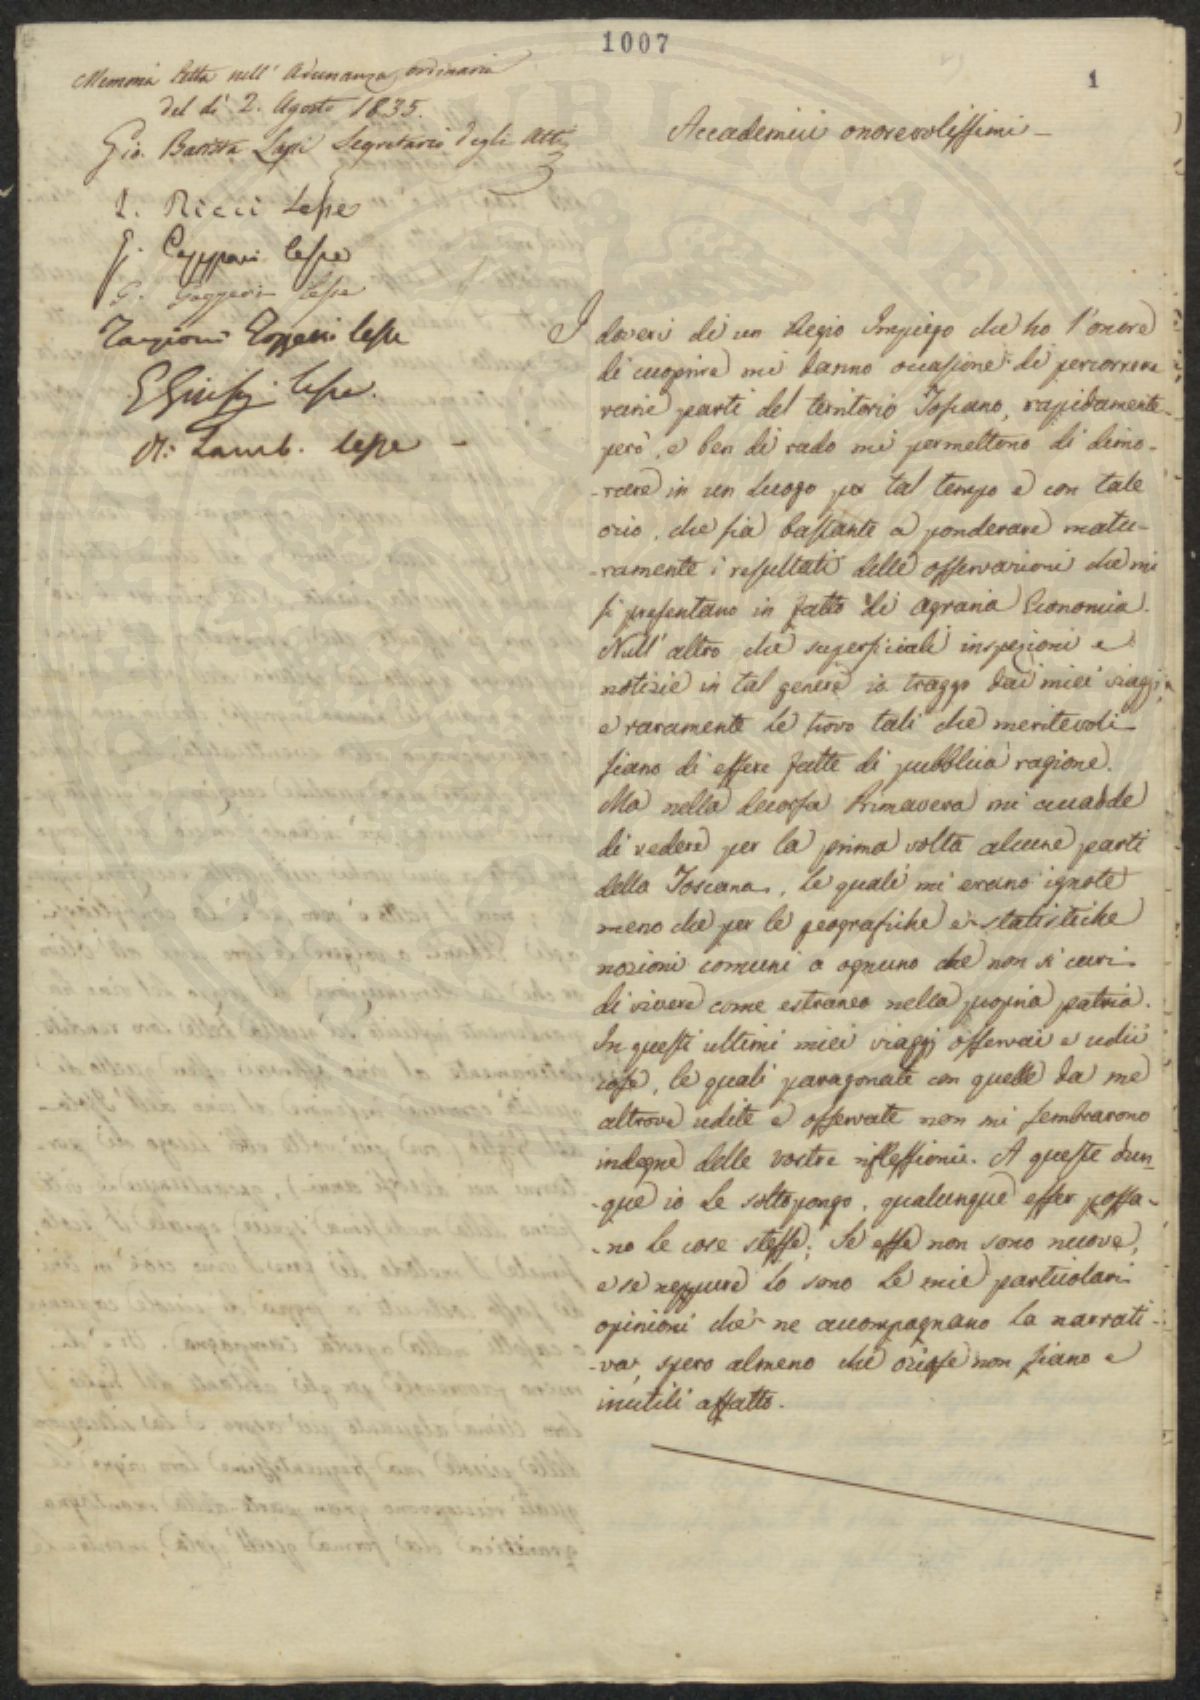 1007
1
Memoria letta nell' Adunanza ordinaria
del dì 2. Agosto 1835.
Gio. Batista Lapi Segretario degli Atti
L. Ricci Lesse
G. Capponi lesse
G. Gazzeri Lesse
Targioni Tozzetti lesse
lesse.
lesse –
Accademici onorevolissimi –
I doveri di un Regio Impiego che ho l'onore
di cuoprire mi danno occasione di percorrere
varie parti del territorio Toscano, rapidamente
però, e ben di rado mi permettono di dimo-
-rare in un luogo per tal tempo e con tale
ozio, che sia bastante a ponderare matu-
-ramente i resultati delle osservazioni che mi
si presentano in fatto di Agraria Economia.
Null' altro che superficiali inspezioni e
notizie in tal genere io traggo dai miei viaggi,
e raramente le trovo tali che meritevoli
siano di essere fatte di pubblica ragione.
Ma nella decorsa Primavera mi accadde
di vedere per la prima volta alcune parti
della Toscana, le quali mi erano ignote
meno che per le geografiche e statistiche
nozioni comuni a ognuno che non si curi
di vivere come estraneo nella propria patria.
In questi ultimi miei viaggi osservai e udii
cose, le quali paragonate con quelle da me
altrove udite e osservate non mi sembrarono
indegne delle vostre riflessioni. A queste dun-
-que io le sottopongo, qualunque esser possa-
-no le cose stesse; Se esse non sono nuove,
e se neppure lo sono le mie particolari
opinioni che ne accompagnano la narrati-
-va, spero almeno che oziose non siano e
inutili affatto.